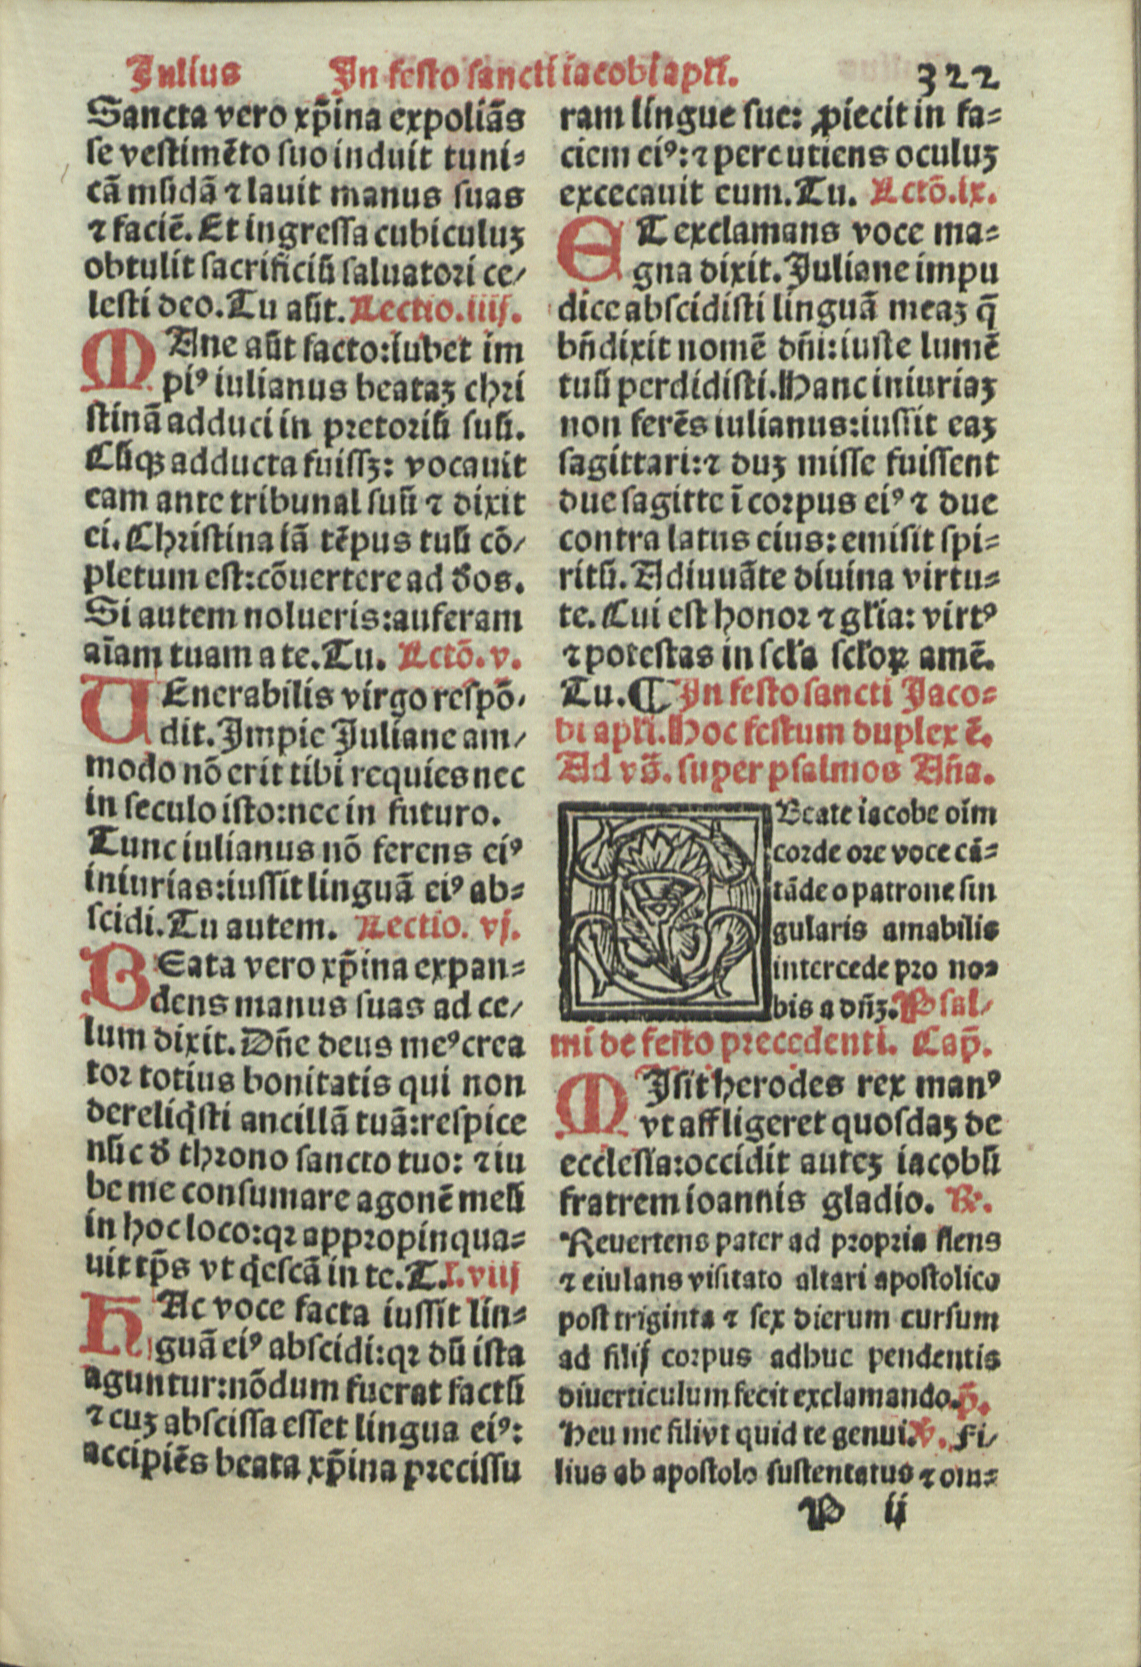 Julius In festo sancti iacobi apľi. 322
Sancta vero xp̄ina expoliās
se vestimēto suo induit tuni⸗
cā mūdā ⁊ lauit manus suas
⁊ faciē. Et ingressa cubiculuꝫ
obtulit sacrificiū saluatori ce/
lesti deo. Tu aūt. Lectio.iiij.
MAne aūt facto: iubet im
piꝰ iulianus beataꝫ chri
stinā adduci in pretoriū suū.
Cūqꝫ adducta fuissꝫ: vocauit
eam ante tribunal suū ⁊ dixit
ei. Christina iā tēpus tuū cō/
pletum est: cōuertere ad d̄os.
Si autem nolueris: auferam
aīam tuam a te. Tu. Lctō.v.
UEnerabilis virgo respō/
dit. Impie Juliane am/
modo nō erit tibi requies nec
in seculo isto: nec in futuro.
Tunc iulianus nō ferens eiꝰ
iniurias: iussit linguā eiꝰ ab⸗
scidi. Tu autem. Lectio. vj.
BEata vero xp̄ina expan⸗
dens manus suas ad ce/
lum dixit. Dn̄e deus meꝰ crea
tor totius bonitatis qui non
dereliq̇sti ancillā tuā: respice
nūc d̄ throno sancto tuo: ⁊ iu
be me consumare agonē meū
in hoc loco: qꝛ appropinqua⸗
uit tp̄s vt q̇escā in te. T. L.viij
HAc voce facta iussit lin⸗
guā eiꝰ abscidi: qꝛ dū ista
aguntur: nōdum fuerat factū
⁊ cuꝫ abscissa esset lingua eiꝰ:
accipiēs beata xp̄ina precissu
ram lingue sue: ꝓiecit in fa⸗
ciem eiꝰ: ⁊ percutiens oculuꝫ
excecauit eum. Tu. Lctō.ix.
ET exclamans voce ma⸗
gna dixit. Juliane impu
dice abscidisti linguā meaꝫ q̄
bn̄dixit nomē dn̄i: iuste lumē
tuū perdidisti. Hanc iniuriaꝫ
non ferēs iulianus: iussit eaꝫ
sagittari: ⁊ duꝫ misse fuissent
due sagitte ī corpus eiꝰ ⁊ due
contra latus eius: emisit spi⸗
ritū. Adiuuāte diuina virtu⸗
te. Cui est honor ⁊ gľia: virtꝰ
⁊ potestas in scľa scľoꝝ amē.
Tu. ¶ In festo sancti Jaco⸗
bi apľi. Hoc festum duplex ē.
Ad vs̄. super psalmos Aña.
O Beate iacobe oīm
corde ore voce cā⸗
tāde o patrone sin
gularis amabilis
intercede pro no⸗
bis a dn̄ꝫ. Psal/
mi de festo precedenti. Cap̄.
MIsit herodes rex manꝰ
vt affligeret quosdaꝫ de
ecclesia: occidit auteꝫ iacobū
fratrem ioannis gladio. ℟.
Reuertens pater ad propria flens
⁊ eiulans visitato altari apostolico
post triginta ⁊ sex dierum cursum
ad filij corpus adhuc pendentis
diuerticulum fecit exclamando. p̄.
Heu me fili vt quid te genui. ℣. Fi/
lius ab apostolo sustentatus ⁊ om⸗
P ij